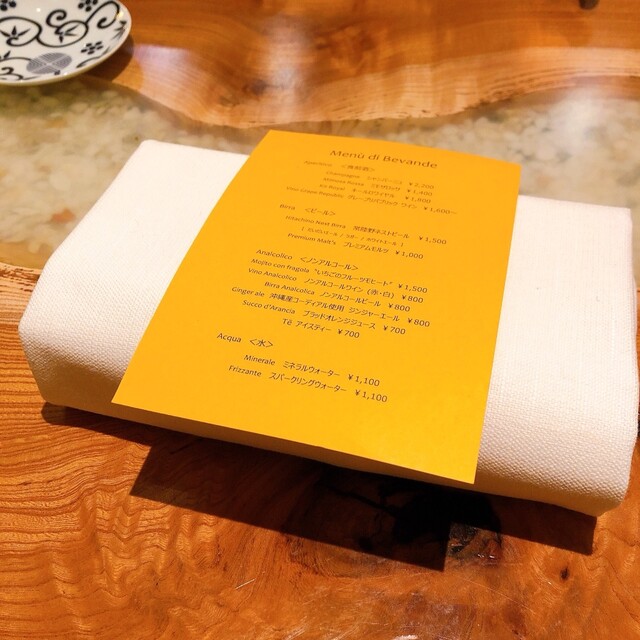 Menù di Bevande
Aperitivo <食前酒>
Champagne シャンパーニュ ¥2,200
¥1,400
キールロワイヤル ¥1,800
Vino Grape Republic グレープリパブリック ワイン ¥1,600~
Birra <ビール>
Hitachino Nest Beea 常陸野ネストビール ¥1,500
Premium Malt's プレミアムモルツ ¥1,000
Analcolico <ノンアルコール>
Mojito con fragola "いちごのフルーツモヒート" ¥1,500
Vino Analcolico ノンアルコールワイン (赤・白) ¥800
Birra Analcolca ノンアルコールビール ¥800
Ginger ale 沖縄産コーディアル使用 ジンジャーエール ¥800
Succo d'Arancia ブラッドオレンジジュース ¥700
Tè アイスティー ¥700
Acqua <水>
Minerale ミネラルウォーター ¥1,100
Frizzante スパークリングウォーター ¥1,100